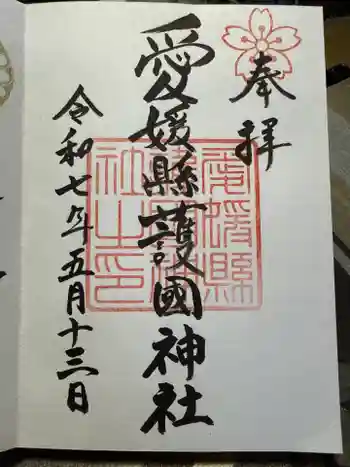 奉拝
愛媛縣護國神社
令和七年五月十三日
愛媛縣
護國神
社之印